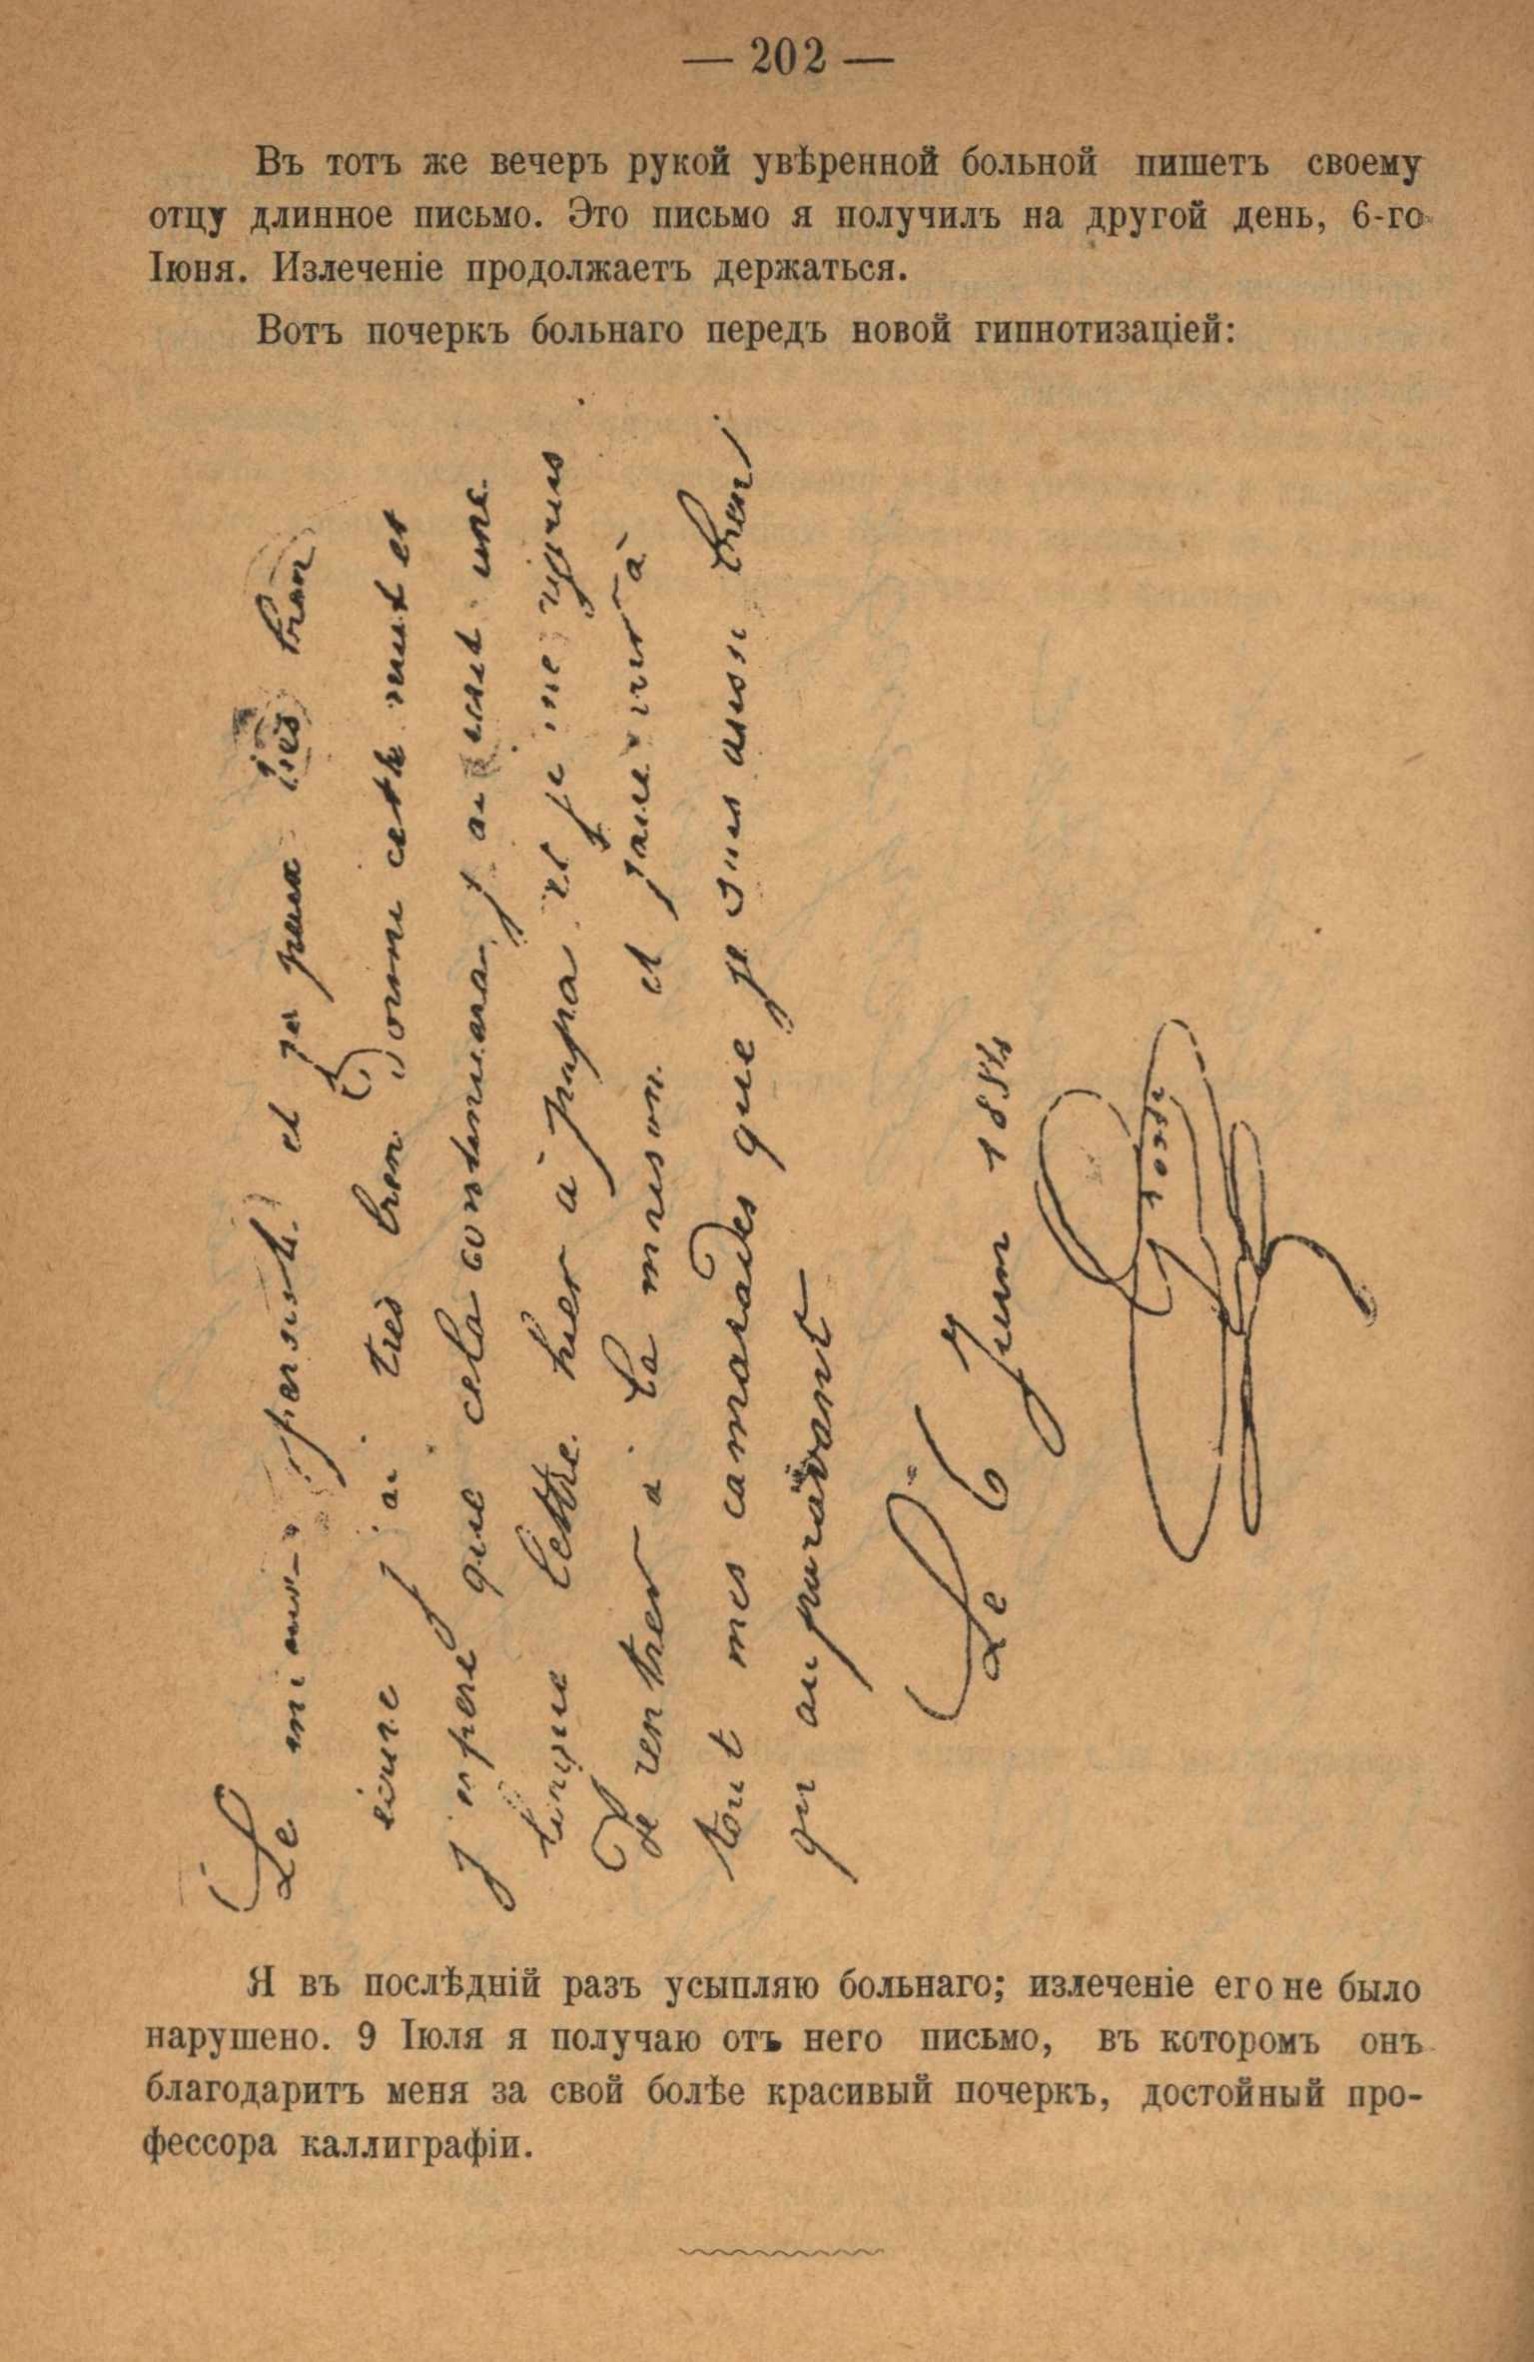 — 202 —
Въ тотъ же вечеръ рукой увѣренной больной пишетъ своему
отцу длинное письмо. Это письмо я получилъ на другой день, 6-го
Іюня. Излеченіе продолжаетъ держаться.
Вотъ почеркъ больнаго передъ новой гипнотизаціей:
Le et je peux très bien
ecrire j'ai tres bien dormi cette nuit et
j'espere que cela continuera j'ai ecrit une
longue lettre hier à papa et je me rejouis
de rentrer a la maison et faire voir à
tout mes camarades que je suis aussi bien
qu auparavant
Le 6 Juin 1884
Я въ послѣдній разъ усыпляю больнаго; излеченіе его не было
нарушено. 9 Іюля я получаю отъ него письмо, въ которомъ онъ
благодаритъ меня за свой болѣе красивый почеркъ, достойный про-
фессора каллиграфіи.